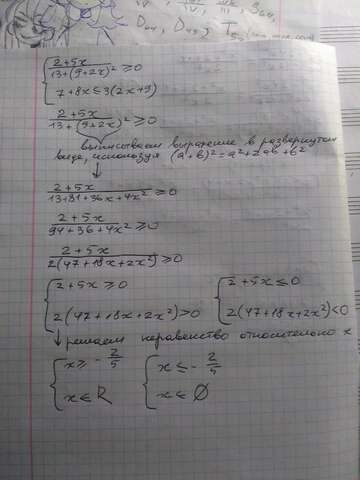 (2+5x)/(13+(9+2x)²) ≥ 0
7+8x ≤ 3(2x+9)
(2+5x)/(13+(9+2x)²) ≥ 0
выписываем выражение в развернутом
виде, используя (a+b)²=a²+2ab+b²
(2+5x)/(13+81+36x+4x²) ≥ 0
(2+5x)/(94+36+4x²) ≥ 0
(2+5x)/(2(47+18x+2x²)) ≥ 0
2+5x ≥ 0 2+5x ≤ 0
2(47+18x+2x²)>0 2(47+18x+2x²)<0
решаем неравенство относительно x
x ≥ -2/5 x ≤ -2/5
x ∈ R x ∈ ∅